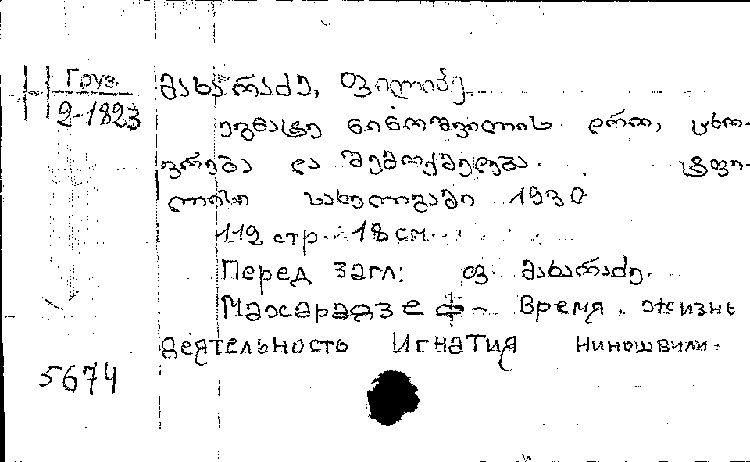 Груз.
2-1823
მახარაძე, ფილიპე
ეგნატე ნინოშვილის დრო, ცხო-
ვრება და შემოქმედება. ტფი-
ლისი სახელგამი 1930
112 стр. 18 см.
Перед загл: ფ. მახარაძე.
Махарадзе Ф- Время, жизнь
деятельность Игнатия Ниношвили.
5674